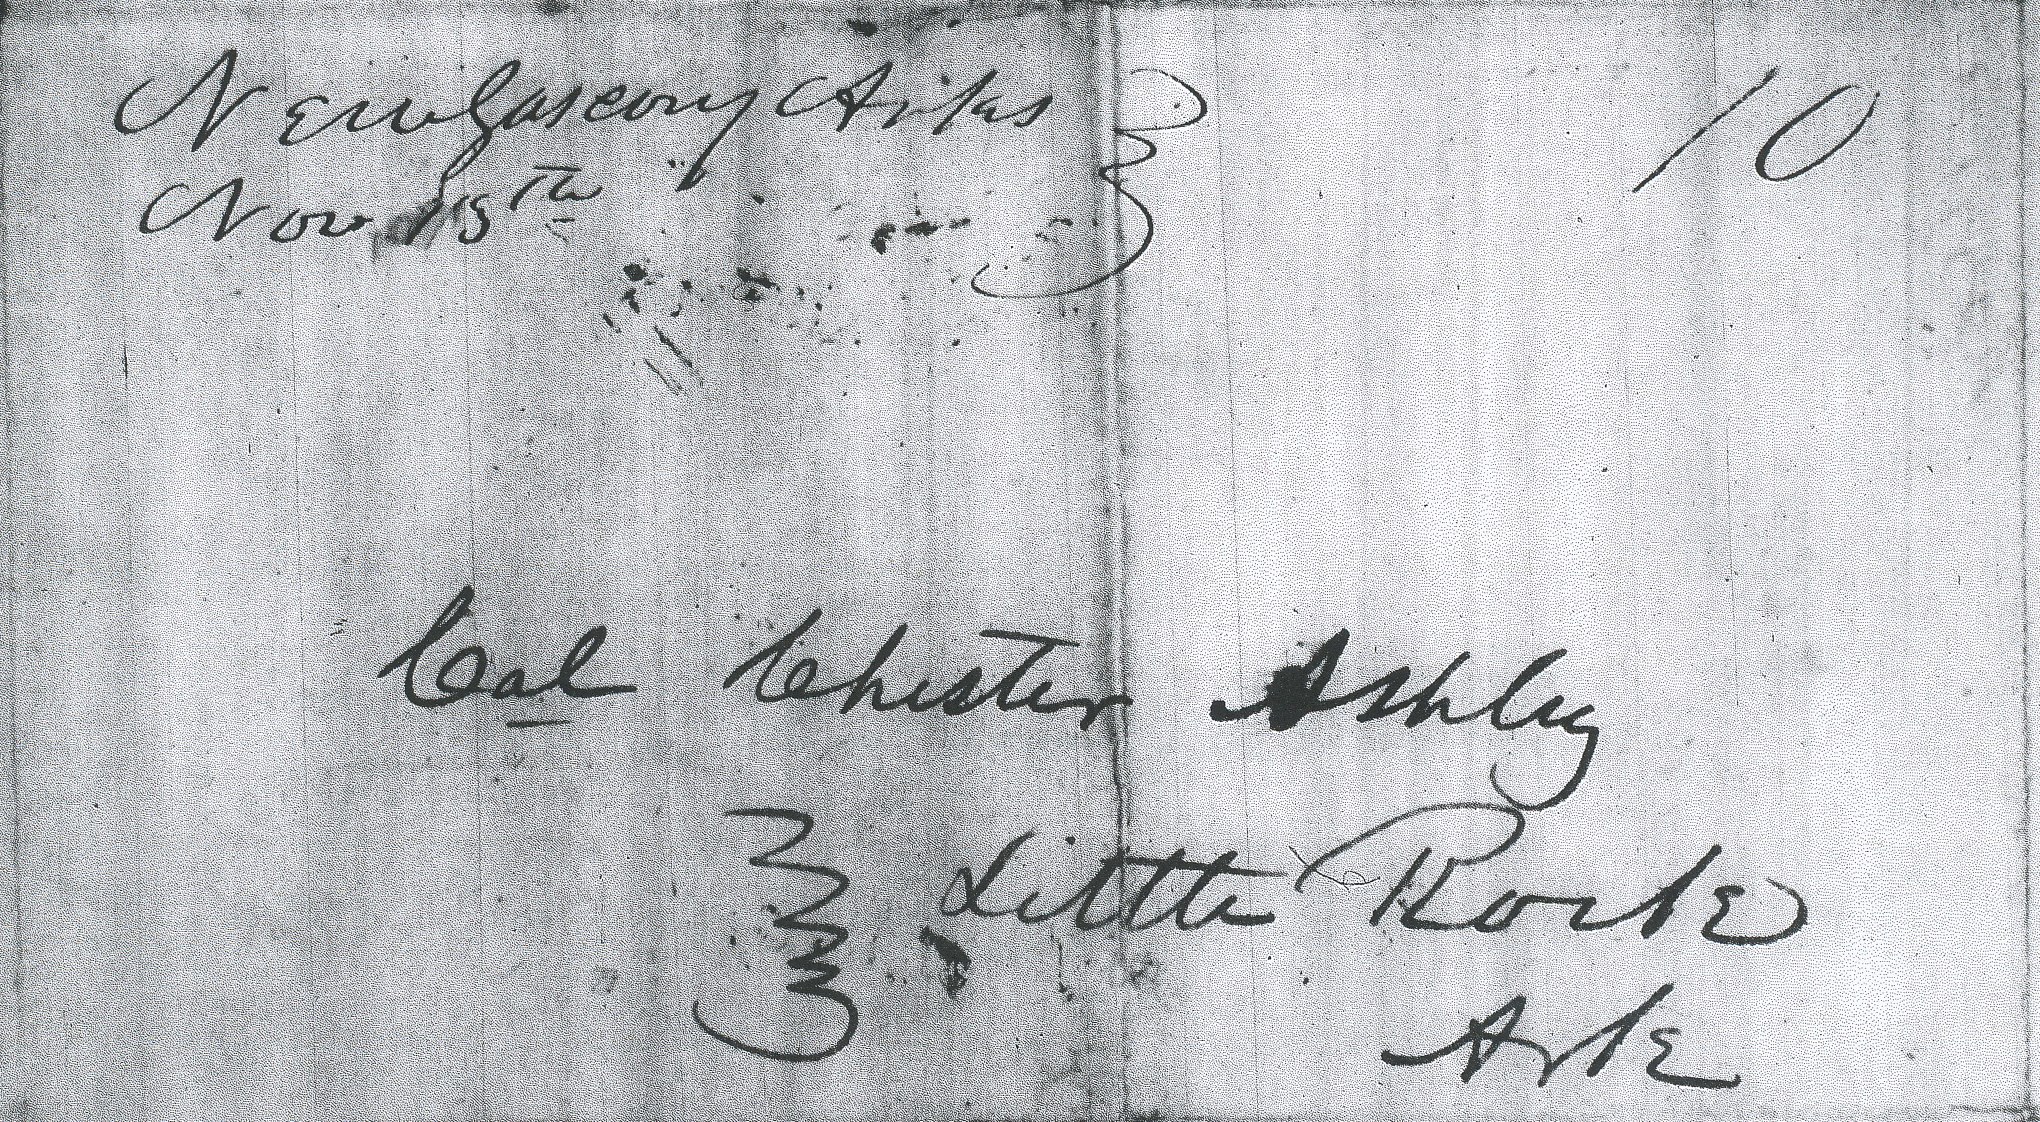 New Gascony Arkas
Nov 15th
10
Col Chester Ashley
Little Rock
Ark